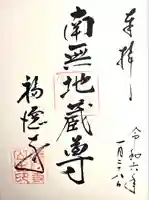 奉拝
令和六年
一月二十八日
南無地蔵尊